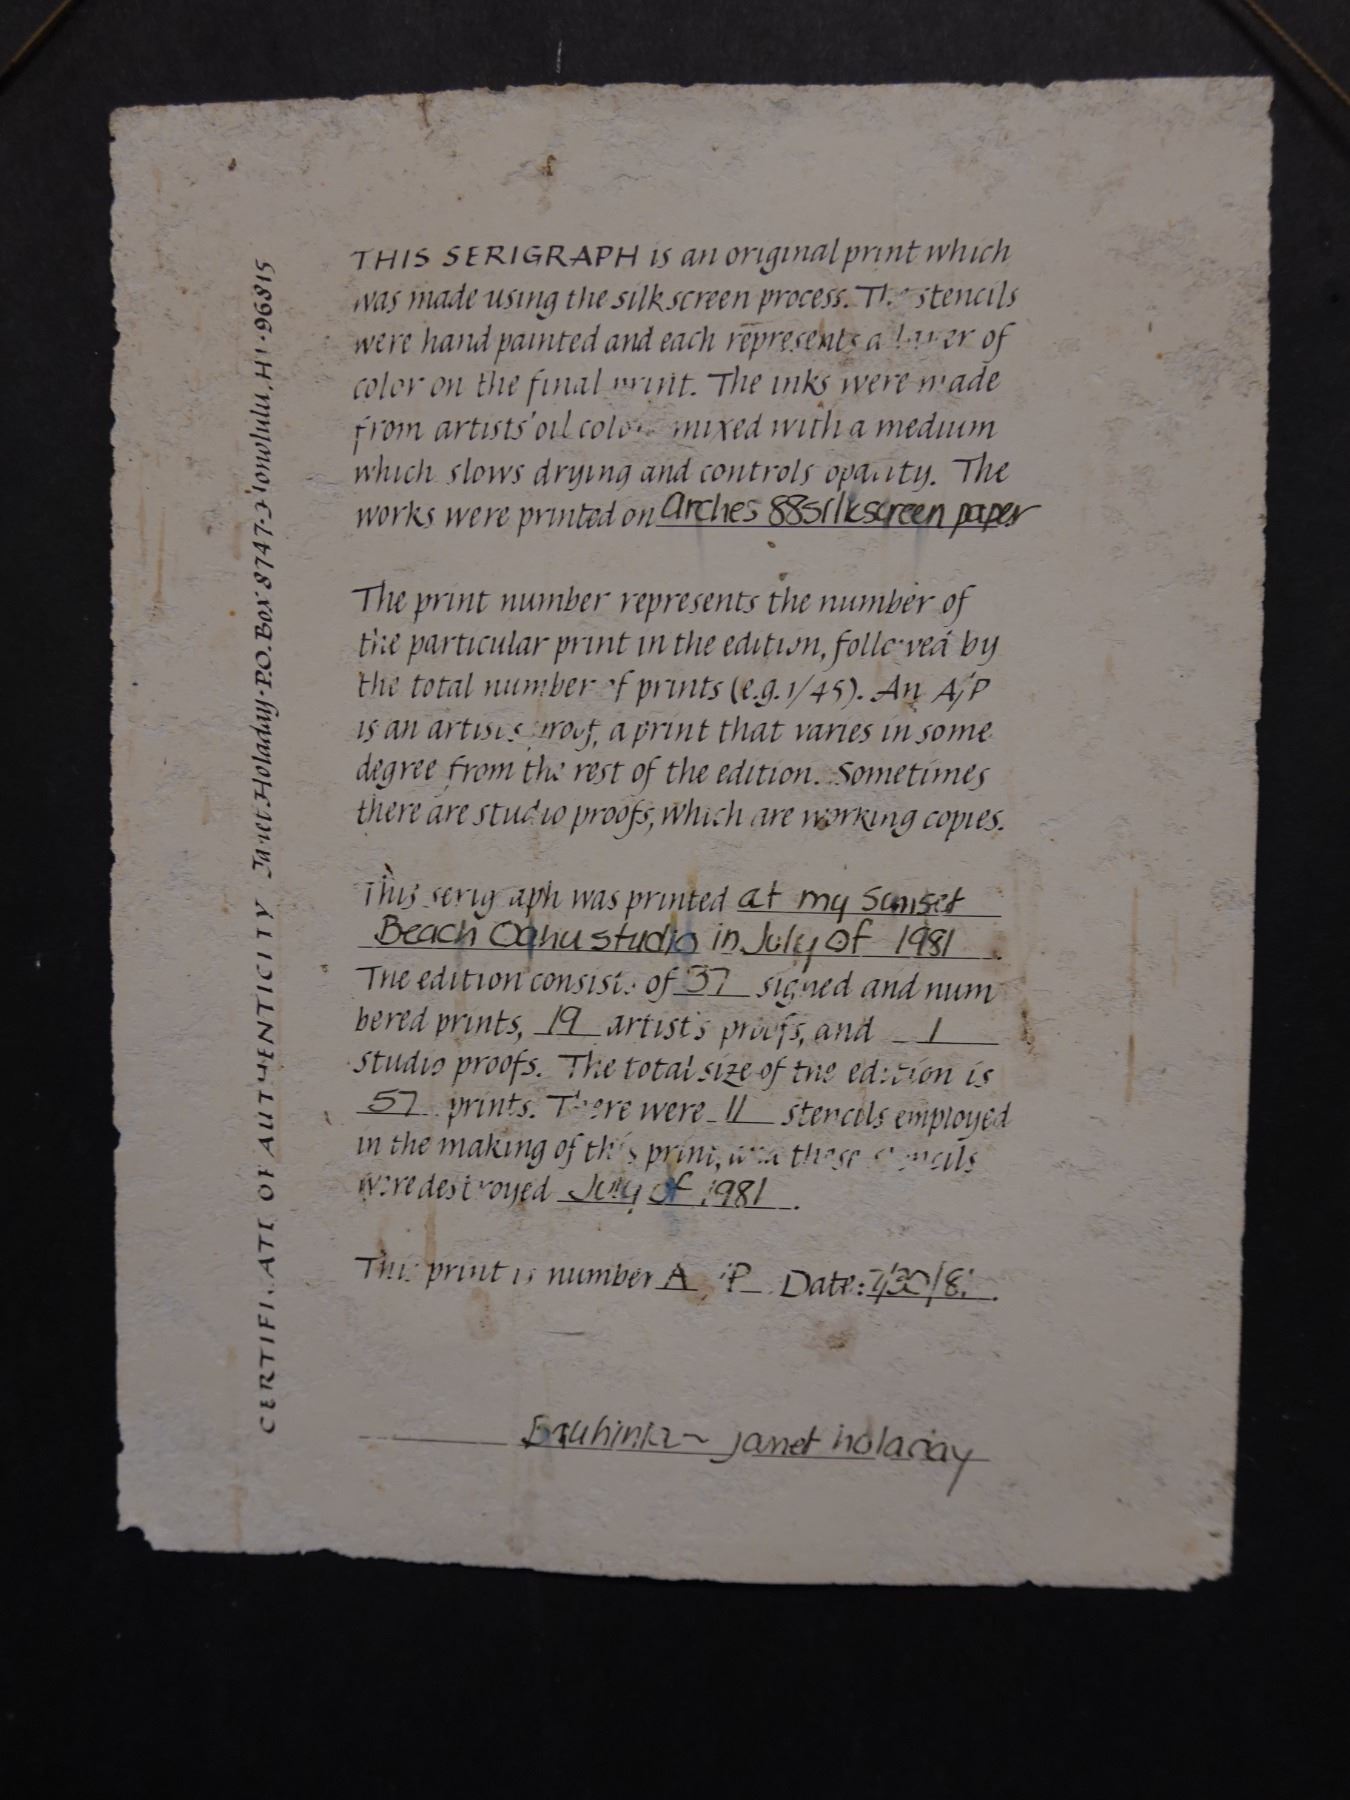 THIS SERIGRAPH is an original print which
was made using the silkscreen process. The stencils
were hand painted and each represents a layer of
color on the final print. The inks were made
from artists' oil colors mixed with a medium
which slows drying and controls opacity. The
works were printed on Arches 88 silkscreen paper
The print number represents the number of
the particular print in the edition, followed by
the total number of prints (e.g. 1/45). An A/P
is an artist's proof, a print that varies in some
degree from the rest of the edition. Sometimes
there are studio proofs, which are working copies.
This serigraph was printed at my Sunset
Beach Oahu studio in July of 1981.
The edition consists of 37 signed and num
bered prints, 19 artist's proofs, and 1
studio proofs. The total size of the edition is
57 prints. There were 11 stencils employed
in the making of this print, and these stencils
were destroyed July of 1981.
This print is number A/P Date: 7/30/81.
Bauhinia ~ Janet Holaday
CERTIFICATE OF AUTHENTICITY Janet Holaday · P.O. Box 8747 · Honolulu, HI · 96815